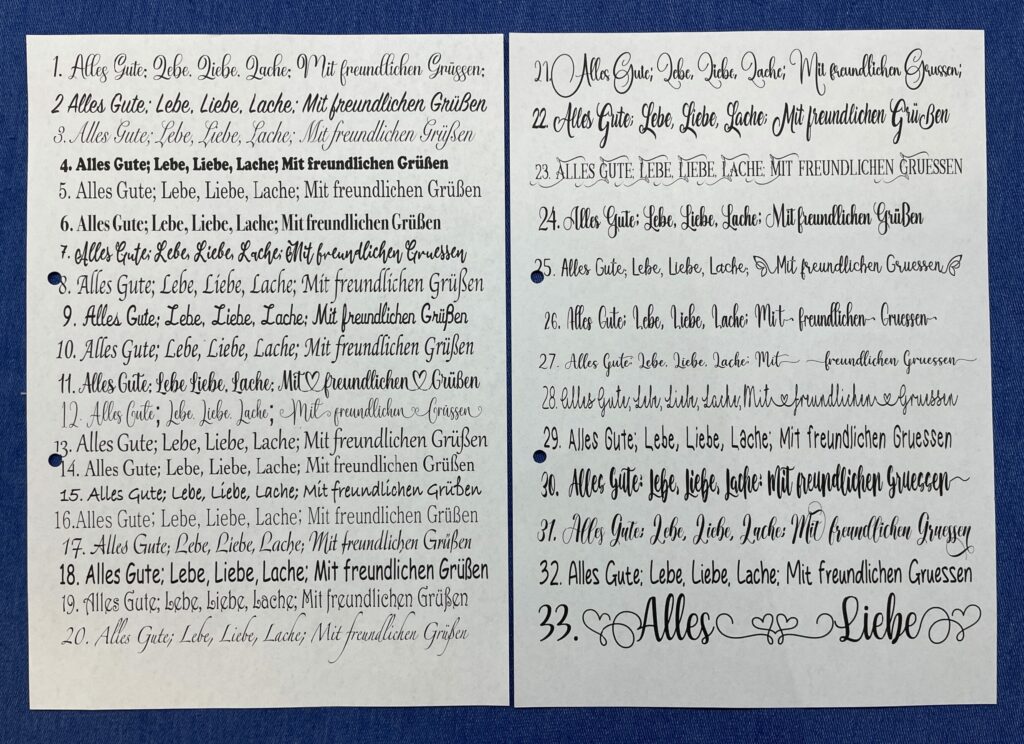 1. Alles Gute; Lebe, Liebe, Lache; Mit freundlichen Grüssen;
2 Alles Gute; Lebe, Liebe, Lache; Mit freundlichen Grüßen
3. Alles Gute; Lebe, Liebe, Lache; Mit freundlichen Grüßen
4. Alles Gute; Lebe, Liebe, Lache; Mit freundlichen Grüßen
5. Alles Gute; Lebe, Liebe, Lache; Mit freundlichen Grüßen
6. Alles Gute; Lebe, Liebe, Lache; Mit freundlichen Grüßen
7. Alles Gute; Lebe, Liebe, Lache; Mit freundlichen Gruessen
8. Alles Gute; Lebe, Liebe, Lache; Mit freundlichen Grüßen
9. Alles Gute; Lebe, Liebe, Lache; Mit freundlichen Grüßen
10. Alles Gute; Lebe, Liebe, Lache; Mit freundlichen Grüßen
11. Alles Gute; Lebe Liebe, Lache; Mit♡freundlichen♡Grüßen
12. Alles Gute; Lebe, Liebe, Lache; Mit freundlichen Grüssen
13. Alles Gute; Lebe, Liebe, Lache; Mit freundlichen Grüßen
14. Alles Gute; Lebe, Liebe, Lache; Mit freundlichen Grüßen
15. Alles Gute; Lebe, Liebe, Lache; Mit freundlichen Grüßen
16.Alles Gute; Lebe, Liebe, Lache; Mit freundlichen Grüßen
17. Alles Gute; Lebe, Liebe, Lache; Mit freundlichen Grüßen
18. Alles Gute; Lebe, Liebe, Lache; Mit freundlichen Grüßen
19. Alles Gute; Lebe, Liebe, Lache; Mit freundlichen Grüßen
20. Alles Gute; Lebe, Liebe, Lache; Mit freundlichen Grüßen
21. Alles Gute; Lebe, Liebe, Lache; Mit freundlichen Grussen;
22. Alles Gute; Lebe, Liebe, Lache; Mit freundlichen Grüßen
23. ALLES GUTE; LEBE, LIEBE, LACHE; MIT FREUNDLICHEN GRUESSEN
24. Alles Gute; Lebe, Liebe, Lache; Mit freundlichen Grüßen
25. Alles Gute; Lebe, Liebe, Lache; Mit freundlichen Gruessen
26. Alles Gute; Lebe, Liebe, Lache; Mit freundlichen Gruessen
27. Alles Gute; Lebe, Liebe, Lache; Mit freundlichen Gruessen
28. Alles Gute, Leb, Lieb, Lache, Mit freundlichen Gruessen
29. Alles Gute; Lebe, Liebe, Lache; Mit freundlichen Gruessen
30. Alles Gute; Lebe, Liebe, Lache; Mit freundlichen Gruessen
31. Alles Gute; Lebe, Liebe, Lache; Mit freundlichen Gruessen
32. Alles Gute; Lebe, Liebe, Lache; Mit freundlichen Gruessen
33. Alles Liebe